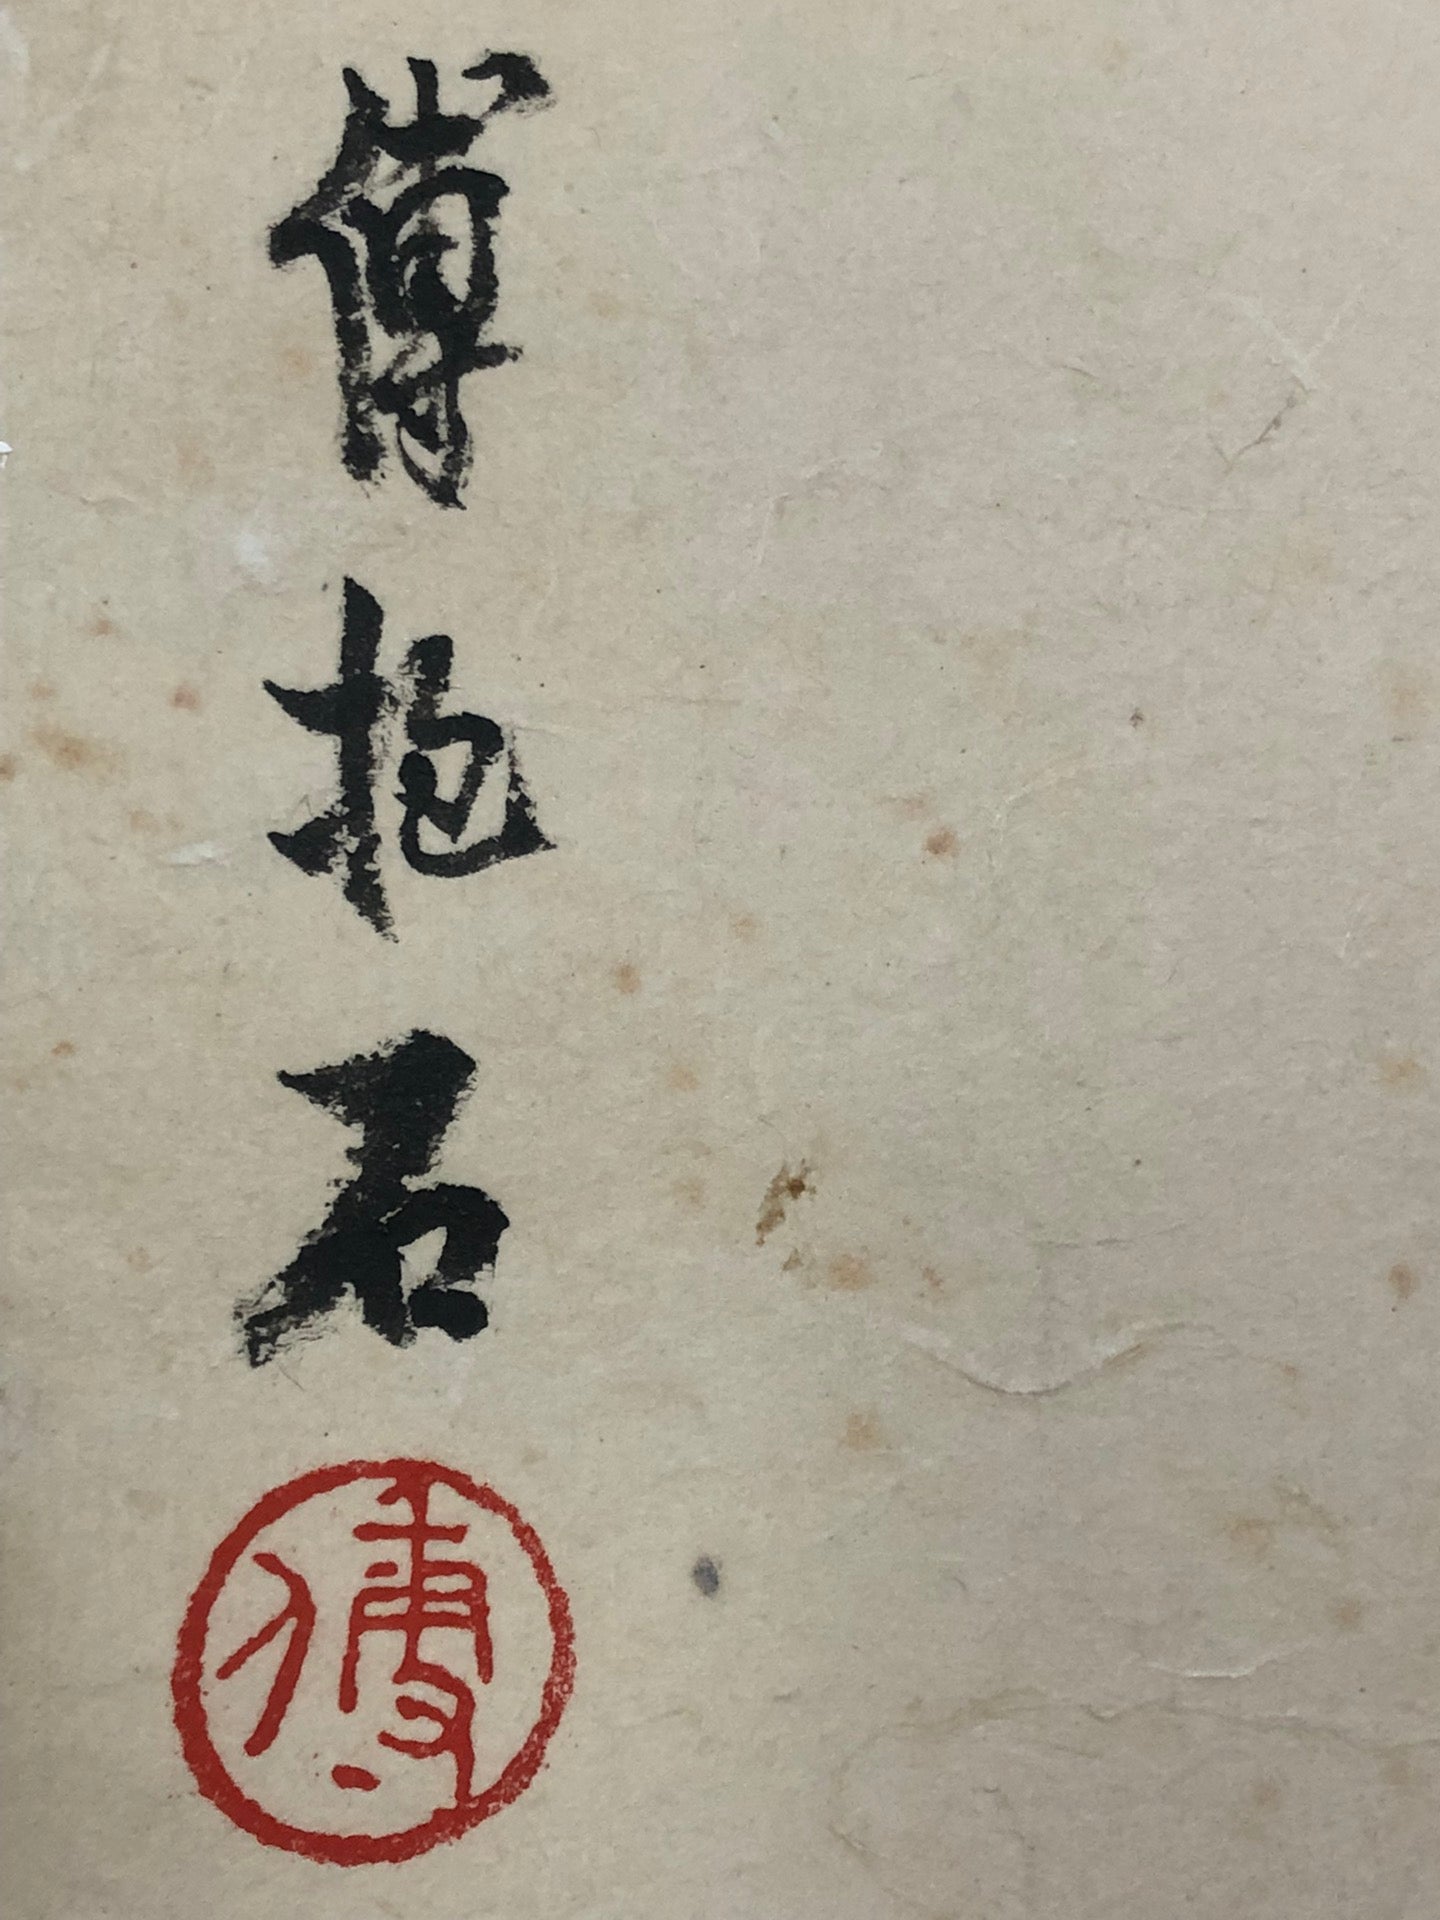 傅抱石
傅